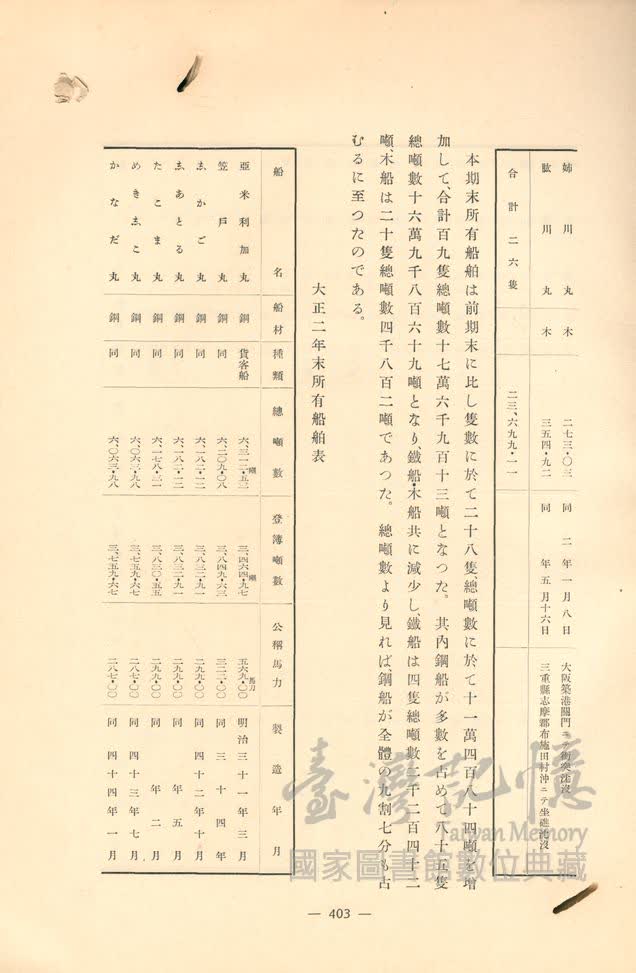 姉川丸 木 二七三・〇三 同 二年一月八日 大阪築港關門ニテ衝突沈沒
肱川丸 木 三五四・九二 同 年五月十六日 三重縣志摩郡布施田村沖ニテ坐礁沈沒
合計二六隻 二三、六九九・一一
本期末所有船舶は前期末に比し隻數に於て二十八隻、總噸數に於て十一萬四百八十四噸を增
加して、合計百九隻總噸數十七萬六千九百十三噸となつた。其內鋼船が多數を占めて八十五隻
總噸數十六萬九千八百六十九噸となり、鐵船・木船共に減少し、鐵船は四隻總噸數二千二百四十二
噸、木船は二十隻總噸數四千八百二噸であつた。總噸數より見れば、鋼船が全體の九割七分も占
むるに至つたのである。
大正二年末所有船舶表
船名 船材 種類 總噸數 登簿噸數 公稱馬力 製造年月
亞米利加丸 鋼 貨客船 六、三一二・五三噸 三、四六四・九七噸 五六九・〇〇馬力 明治三十一年三月
笠戶丸 鋼 同 六、二〇九・〇八 三、八四九・六三 三二二・〇〇 同 三十四年
志かご丸 鋼 同 六、一八二・一二 三、八三二・九一 二九九・〇〇 同 四十二年十月
志あとる丸 鋼 同 六、一八二・一二 三、八三二・九一 二九九・〇〇 同 年五月
たこま丸 鋼 同 六、一七八・三一 三、八三〇・五五 二九九・〇〇 同 年二月
めき志こ丸 鋼 同 六、〇六三・九八 三、七五九・六七 二八七・〇〇 同 四十三年七月
かなだ丸 鋼 同 六、〇六三・九八 三、七五九・六七 二八七・〇〇 同 四十四年一月
— 403 —
臺灣記憶
Taiwan Memory
國家圖書館數位典藏